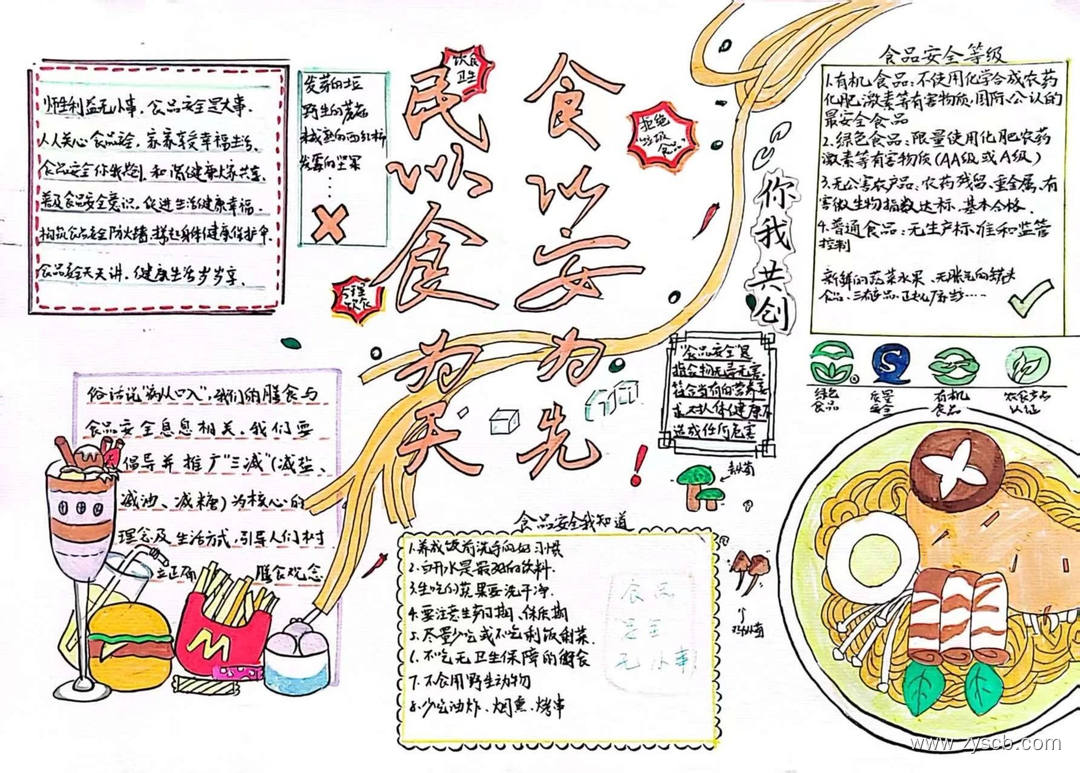 师生利益无小事，食品安全是大事。
人人关心食品安全，家家享受幸福生活。
食品安全你我他，和谐健康大家共享。
普及食品安全意识，促进生活健康幸福。
构筑食品安全防火墙，撑起身体健康保护伞。
食品安全天天讲，健康生活岁岁享。
发芽的土豆
野生的蘑菇
未成熟的西红柿
发霉的坚果
……
饮食
卫生
民以食为天
食以安为先
拒绝
垃圾
食品
合理
饮食
你我共创
食品安全等级
1.有机食品：不使用化学合成农药
化肥激素等有害物质，国际公认的
最安全食品
2.绿色食品：限量使用化肥农药
激素等有害物质（AA级或A级）
3.无公害农产品：农药残留、重金属、有
害微生物指数达标，基本合格。
4.普通食品：无生产标准和监管
控制
新鲜的蔬菜水果、无胀气的罐头
食品、三有品、正规厂家……
绿色
食品
质量
安全
有机
食品
农产品
认证
"食品安全"是
指食物无毒无害，
符合当有的营养要
求，对人体健康不
造成任何危害
俗话说"病从口入"，我们的膳食与
食品安全息息相关。我们要
倡导并推广"三减"（减盐、
减油、减糖）为核心的
理念及生活方式，引导人们树
立正确膳食观念
食品安全我知道
1.养成饭前洗手的好习惯
2.白开水是最好的饮料.
3.生吃的蔬果要洗干净.
4.要注意生产日期、保质期
5.尽量少吃或不吃剩饭剩菜.
6.不吃无卫生保障的街食
7.不食用野生动物
8.少吃油炸、烟熏、烧串
食品
安全
无小事
www.zyscb.com